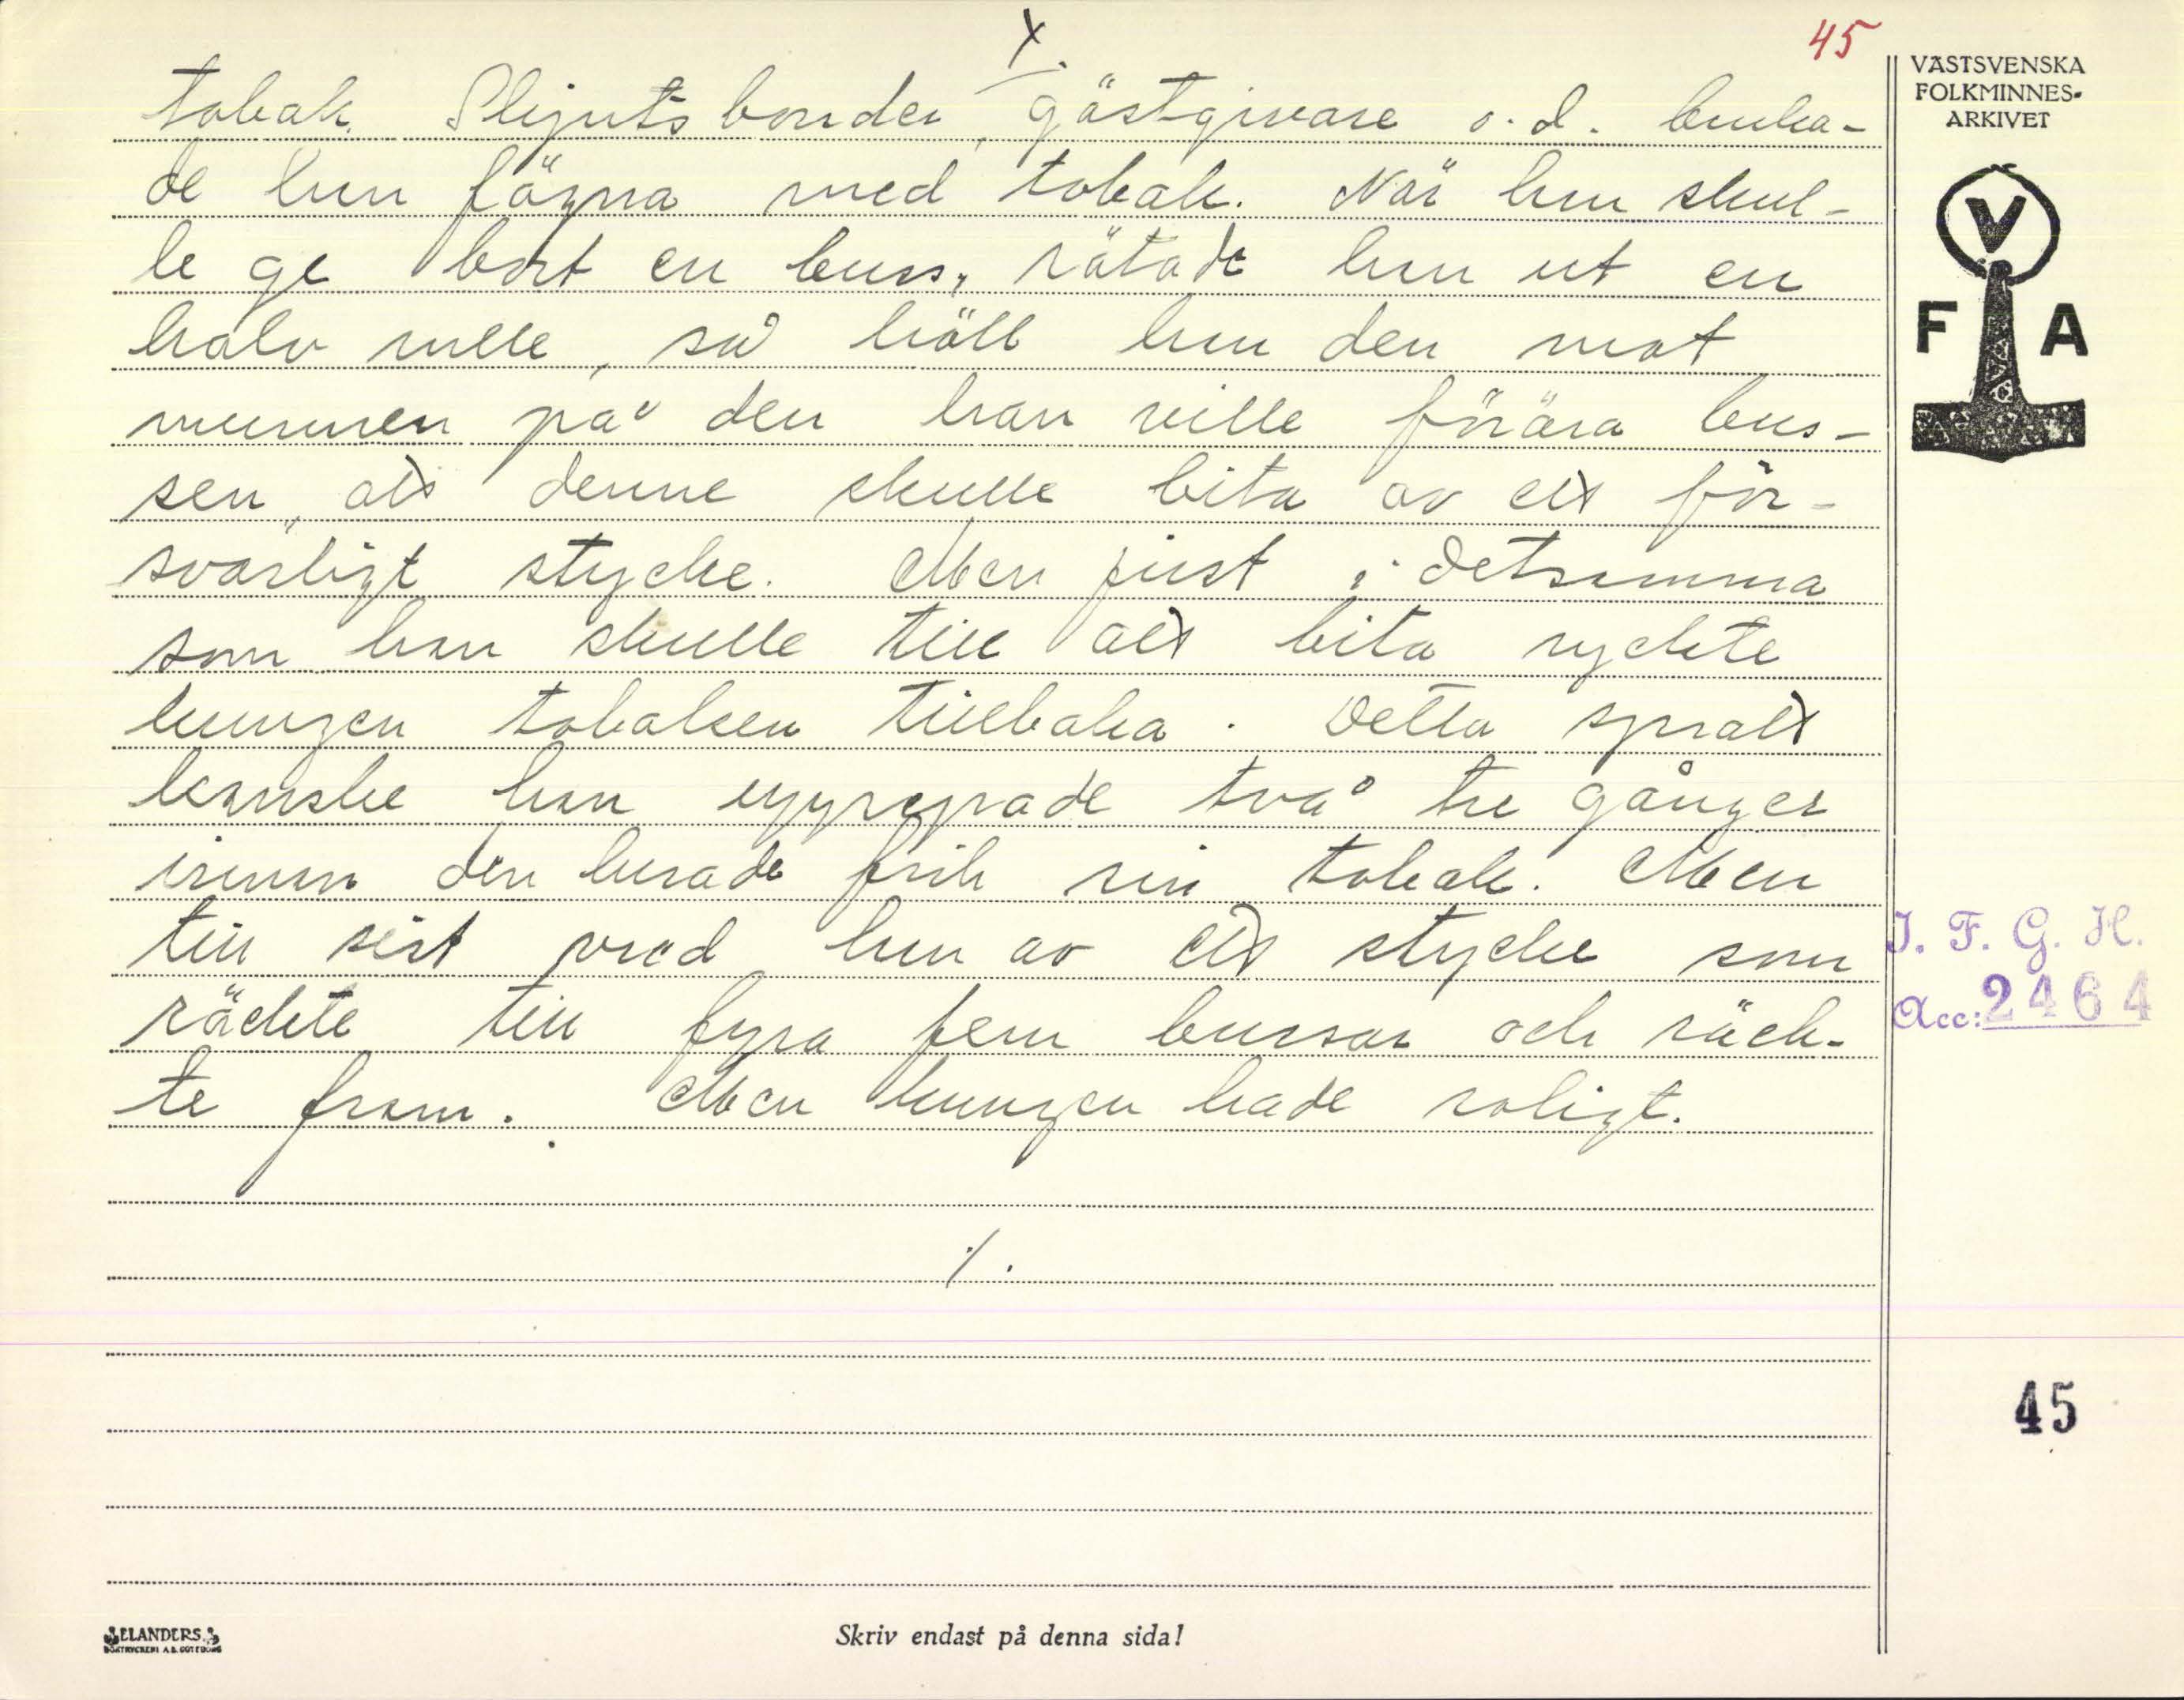 X.
45
tobak. Skjutsbonder, gästgivare o.d. bruka-
de han fägna med tobak. När han skul-
le ge bort en buss, rätade han ut en
halv rulle, så höll han den mot
munnen på den han ville förära bus-
sen, att denne skulle bita av ett för-
svarligt stycke. Men just i detsamma
som han skulle till att bita ryckte
kungen tobaksen tillbaka. Detta spratt
kanske han upprepade två tre gånger
innan den lurade fick sin tobak. Men
till sist vred han av ett stycke som
räckte till fyra fem bussar och räck-
te fram. Men kungen hade roligt.
./.
VÄSTSVENSKA
FOLKMINNES-
ARKIVET
V
F A
I. F. G. H.
Acc: 2464
45
ELANDERS
BOKTRYCKERI A.B. GÖTEBORG
Skriv endast på denna sida!